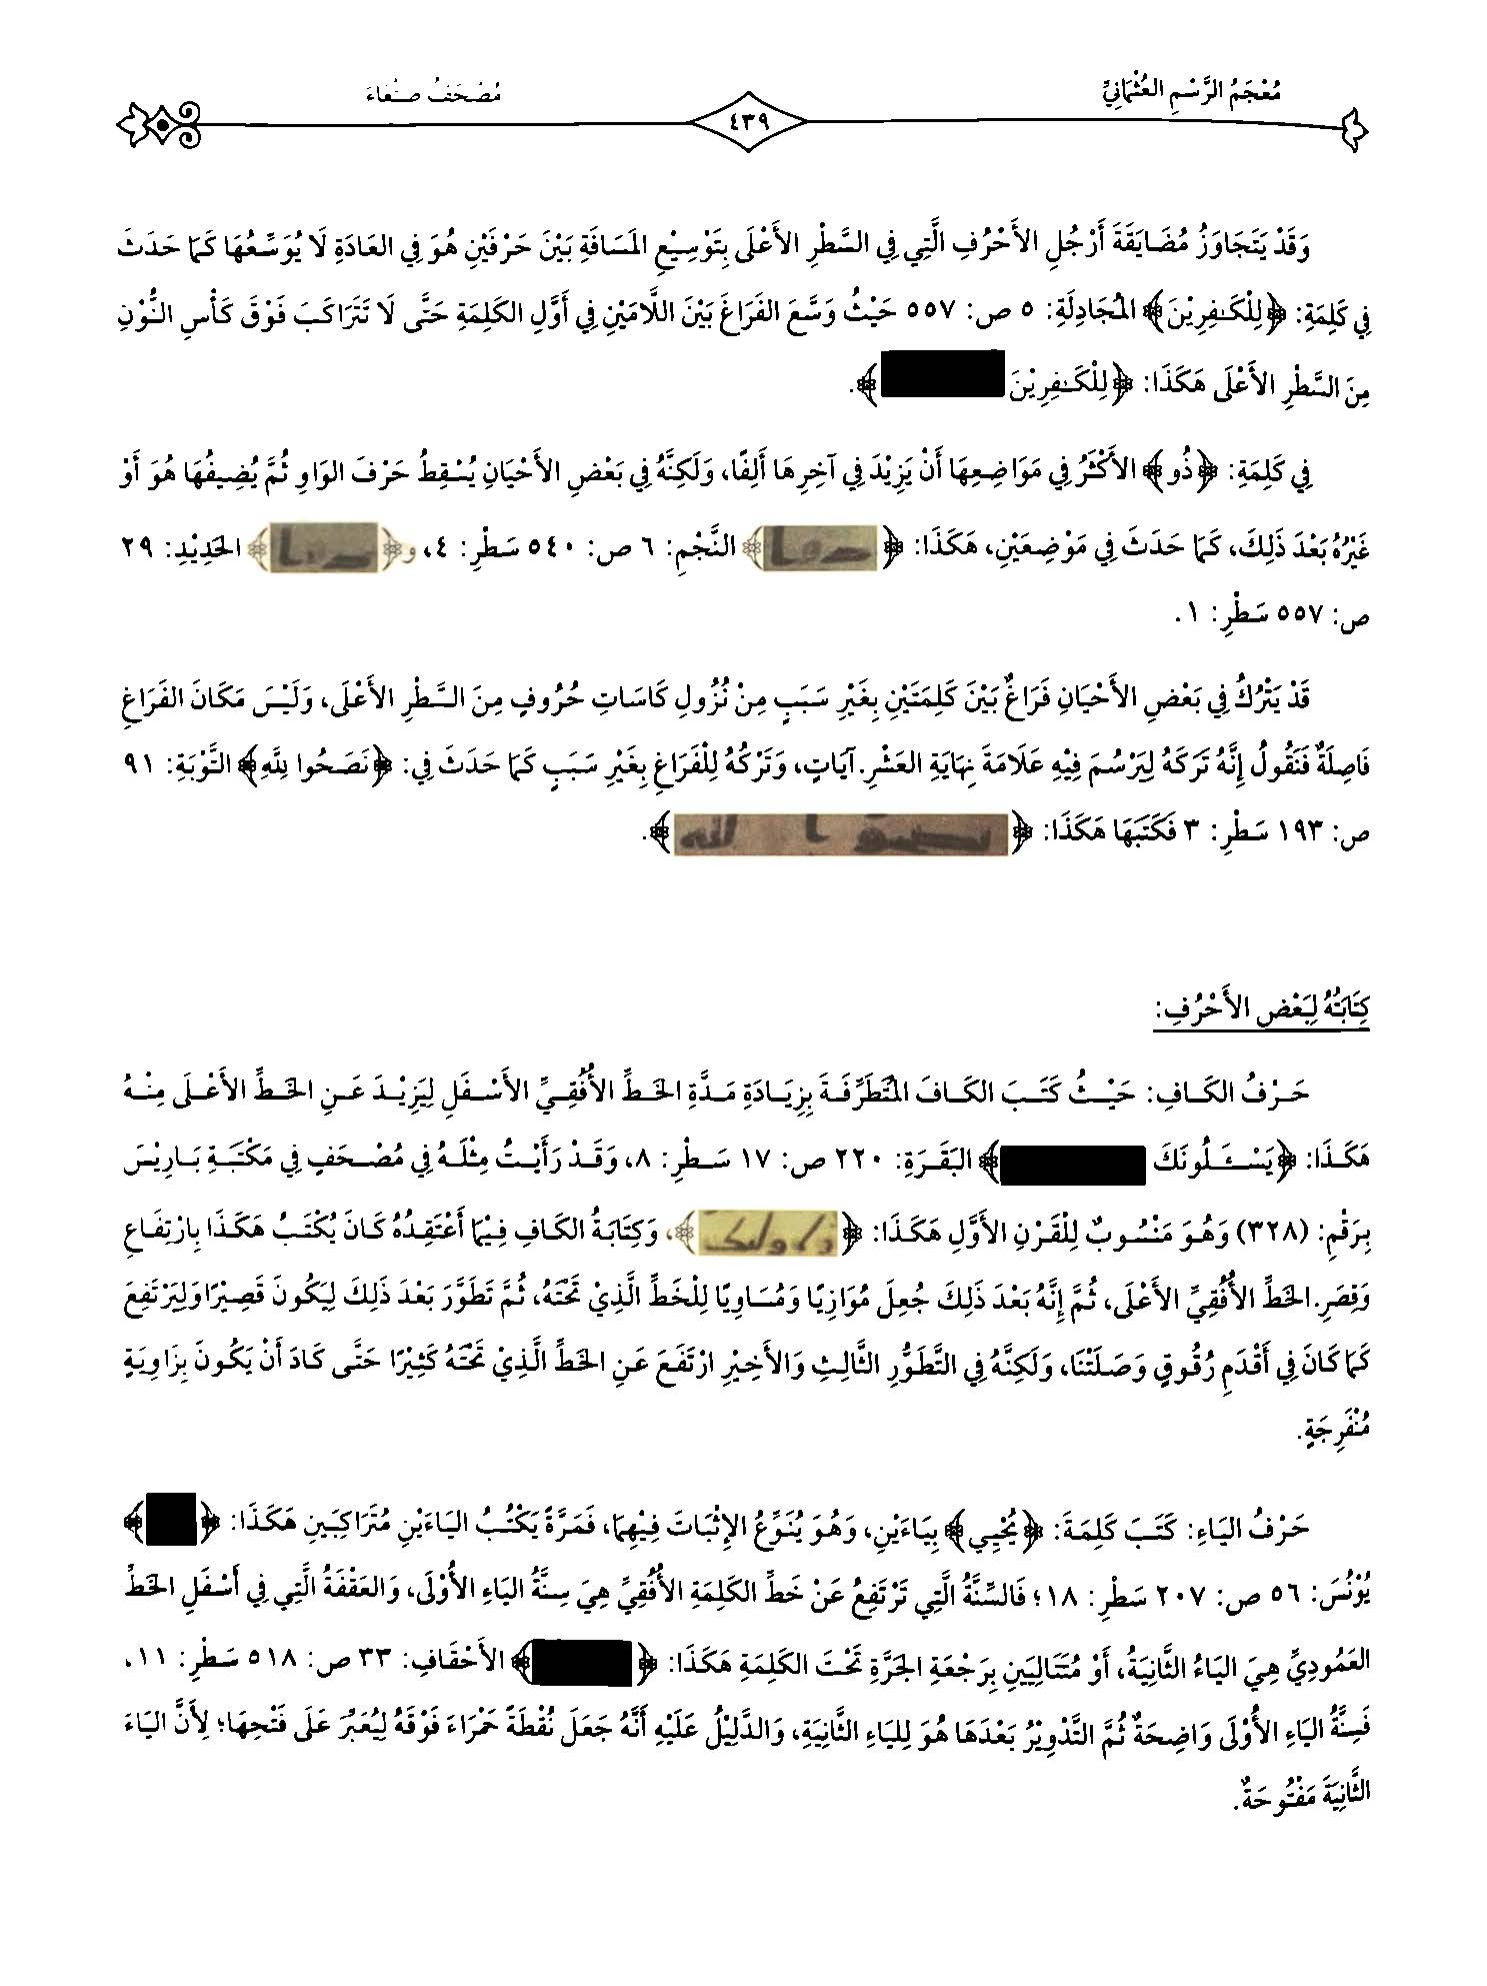 مُعْجَمُ الرَّسْمِ العُثْمَانِيِّ
٤٣٩
مُصْحَفُ صَنْعَاءَ
وَقَدْ يَتَجَاوَزُ مُضَايَقَةَ أَرْجُلِ الأَحْرُفِ الَّتِي فِي السَّطْرِ الأَعْلَى بِتَوْسِيْعِ المَسَافَةِ بَيْنَ حَرْفَيْنِ هُوَ فِي العَادَةِ لَا يُوَسِّعُهَا كَمَا حَدَثَ
فِي كَلِمَةِ: ﴿لِلْكَـٰفِرِيْنَ﴾ المُجَادِلَةِ: ٥ ص: ٥٥٧ حَيْثُ وَسَّعَ الفَرَاغَ بَيْنَ اللَّامَيْنِ فِي أَوَّلِ الكَلِمَةِ حَتَّى لَا تَتَرَاكَبَ فَوْقَ كَأْسِ النُّوْنِ
مِنَ السَّطْرِ الأَعْلَى هَكَذَا: ﴿لِلْكَـٰفِرِيْنَ ﴾.
فِي كَلِمَةِ: ﴿ذُو﴾ الأَكْثَرُ فِي مَوَاضِعِهَا أَنْ يَزِيْدَ فِي آخِرِهَا أَلِفًا، وَلَكِنَّهُ فِي بَعْضِ الأَحْيَانِ يُسْقِطُ حَرْفَ الوَاوِ ثُمَّ يُضِيفُهَا هُوَ أَوْ
غَيْرُهُ بَعْدَ ذَلِكَ، كَمَا حَدَثَ فِي مَوْضِعَيْنِ، هَكَذَا: ﴿ ﴾ النَّجْمِ: ٦ ص: ٥٤٠ سَطْرِ: ٤، و﴿ ﴾ الحَدِيْدِ: ٢٩
ص: ٥٥٧ سَطْرِ: ١.
قَدْ يَتْرُكُ فِي بَعْضِ الأَحْيَانِ فَرَاغٌ بَيْنَ كَلِمَتَيْنِ بِغَيْرِ سَبَبٍ مِنْ نُزُولِ كَاسَاتِ حُرُوفٍ مِنَ السَّطْرِ الأَعْلَى، وَلَيْسَ مَكَانَ الفَرَاغِ
فَاصِلَةٌ فَنَقُولُ إِنَّهُ تَرَكَهُ لِيَرْسُمَ فِيْهِ عَلَامَةَ نِهَايَةِ العَشْرِ.آيَاتٍ، وَتَرْكُهُ لِلْفَرَاغِ بِغَيْرِ سَبَبٍ كَمَا حَدَثَ فِي: ﴿نَصَحُوا لِلَّهِ﴾ التَّوْبَةِ: ٩١
ص: ١٩٣ سَطْرِ: ٣ فَكَتَبَهَا هَكَذَا: ﴿ ﴾.
كِتَابَتُهُ لِبَعْضِ الأَحْرُفِ:
حَرْفُ الكَافِ: حَيْثُ كَتَبَ الكَافَ المُتَطَرِّفَةَ بِزِيَادَةِ مَدَّةِ الخَطِّ الأُفُقِيِّ الأَسْفَلِ لِيَزِيْدَ عَنِ الخَطِّ الأَعْلَى مِنْهُ
هَكَذَا: ﴿يَسْـَٔلُونَكَ ﴾ البَقَرَةِ: ٢٢٠ ص: ١٧ سَطْرِ: ٨، وَقَدْ رَأَيْتُ مِثْلَهُ فِي مُصْحَفٍ فِي مَكْتَبَةِ بَارِيْسَ
بِرَقْمِ: (٣٢٨) وَهُوَ مَنْسُوبٌ لِلْقَرْنِ الأَوَّلِ هَكَذَا: ﴿ ﴾، وَكِتَابَةُ الكَافِ فِيْمَا أَعْتَقِدُهُ كَانَ يُكْتَبُ هَكَذَا بِارْتِفَاعِ
وَقِصَرِ.الخَطِّ الأُفُقِيِّ الأَعْلَى، ثُمَّ إِنَّهُ بَعْدَ ذَلِكَ جُعِلَ مُوَازِيًا وَمُسَاوِيًا لِلْخَطِّ الَّذِيْ تَحْتَهُ، ثُمَّ تَطَوَّرَ بَعْدَ ذَلِكَ لِيَكُونَ قَصِيْرًا وَلِيَرْتَفِعَ
كَمَا كَانَ فِي أَقْدَمِ رُقُوقٍ وَصَلَتْنَا، وَلَكِنَّهُ فِي التَّطَوُّرِ الثَّالِثِ وَالأَخِيْرِ ارْتَفَعَ عَنِ الخَطِّ الَّذِيْ تَحْتَهُ كَثِيْرًا حَتَّى كَادَ أَنْ يَكُونَ بِزَاوِيَةٍ
مُنْفَرِجَةٍ.
حَرْفُ اليَاءِ: كَتَبَ كَلِمَةَ: ﴿يُحْيِي﴾ بِيَاءَيْنِ، وَهُوَ يُنَوِّعُ الإِثْبَاتَ فِيْهِمَا، فَمَرَّةً يَكْتُبُ اليَاءَيْنِ مُتَرَاكِبَيْنِ هَكَذَا: ﴿ ﴾
يُوْنُسَ: ٥٦ ص: ٢٠٧ سَطْرِ: ١٨؛ فَالسِّنَّةُ الَّتِي تَرْتَفِعُ عَنْ خَطِّ الكَلِمَةِ الأُفُقِيِّ هِيَ سِنَّةُ اليَاءِ الأُوْلَى، وَالعَقْفَةُ الَّتِي فِي أَسْفَلِ الخَطِّ
العَمُودِيِّ هِيَ اليَاءُ الثَّانِيَةُ، أَوْ مُتَتَالِيَيْنِ بِرَجْعَةِ الجَرَّةِ تَحْتَ الكَلِمَةِ هَكَذَا: ﴿ ﴾ الأَحْقَافِ: ٣٣ ص: ٥١٨ سَطْرِ: ١١،
فَسِنَّةُ اليَاءِ الأُوْلَى وَاضِحَةٌ ثُمَّ التَّدْوِيْرُ بَعْدَهَا هُوَ لِليَاءِ الثَّانِيَةِ، وَالدَّلِيْلُ عَلَيْهِ أَنَّهُ جَعَلَ نُقْطَةً حَمْرَاءَ فَوْقَهُ لِيُعَبِّرَ عَلَى فَتْحِهَا؛ لِأَنَّ اليَاءَ
الثَّانِيَةَ مَفْتُوحَةٌ.